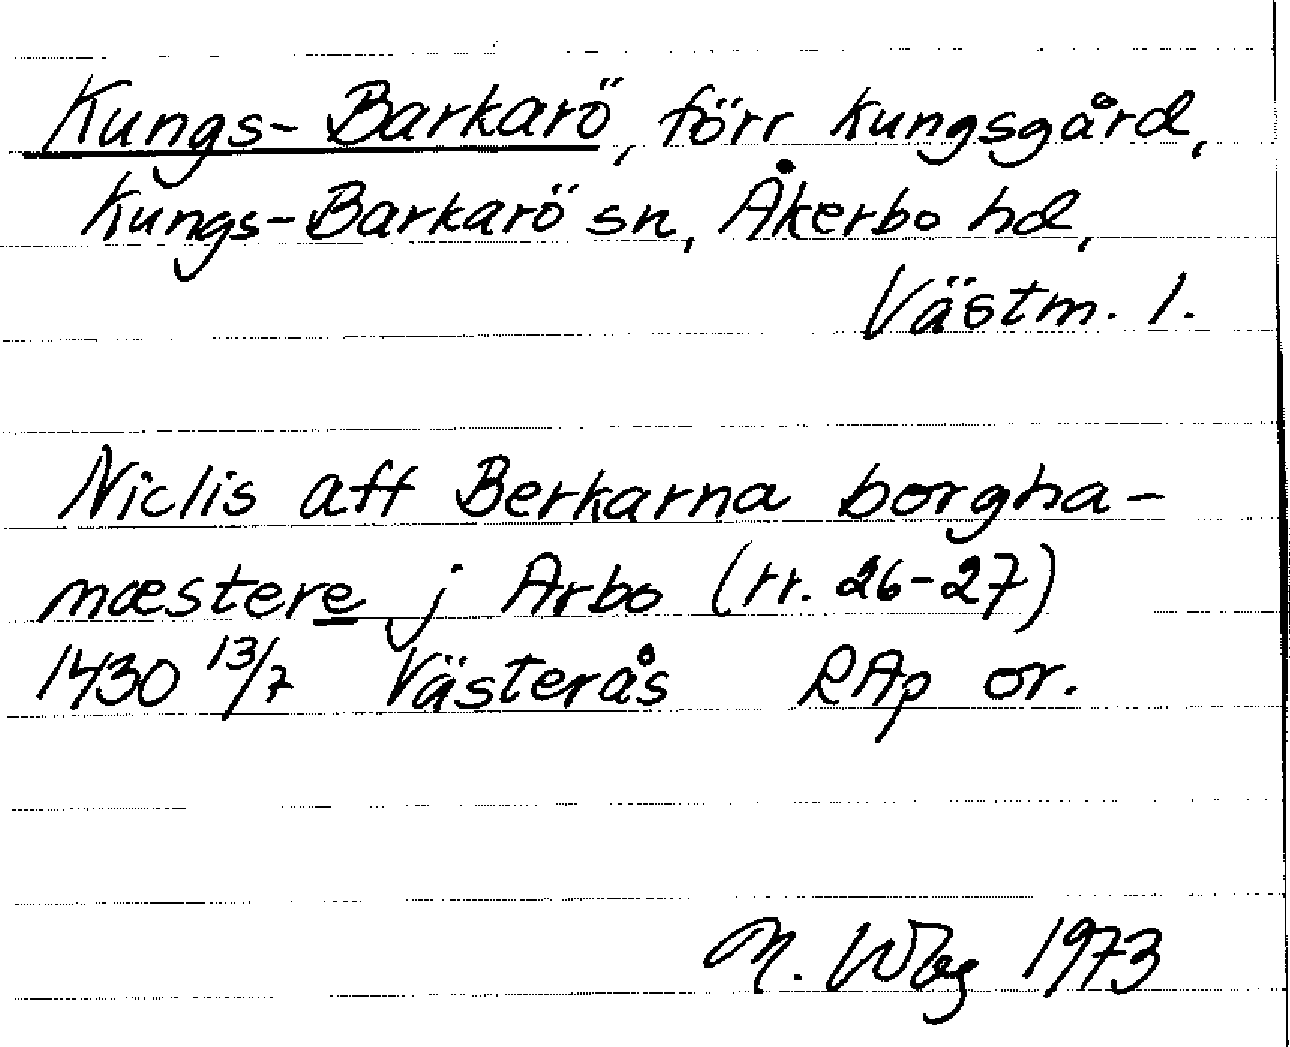 Kungs-Barkarö, förr kungsgård,
Kungs-Barkarö sn, Åkerbo hd,
Västm. l.
Niclis aff Berkarna borgha-
mæstere j Arbo (rr. 26-27)
1430 13/7 Västerås RAp or.
M. Wbg 1973